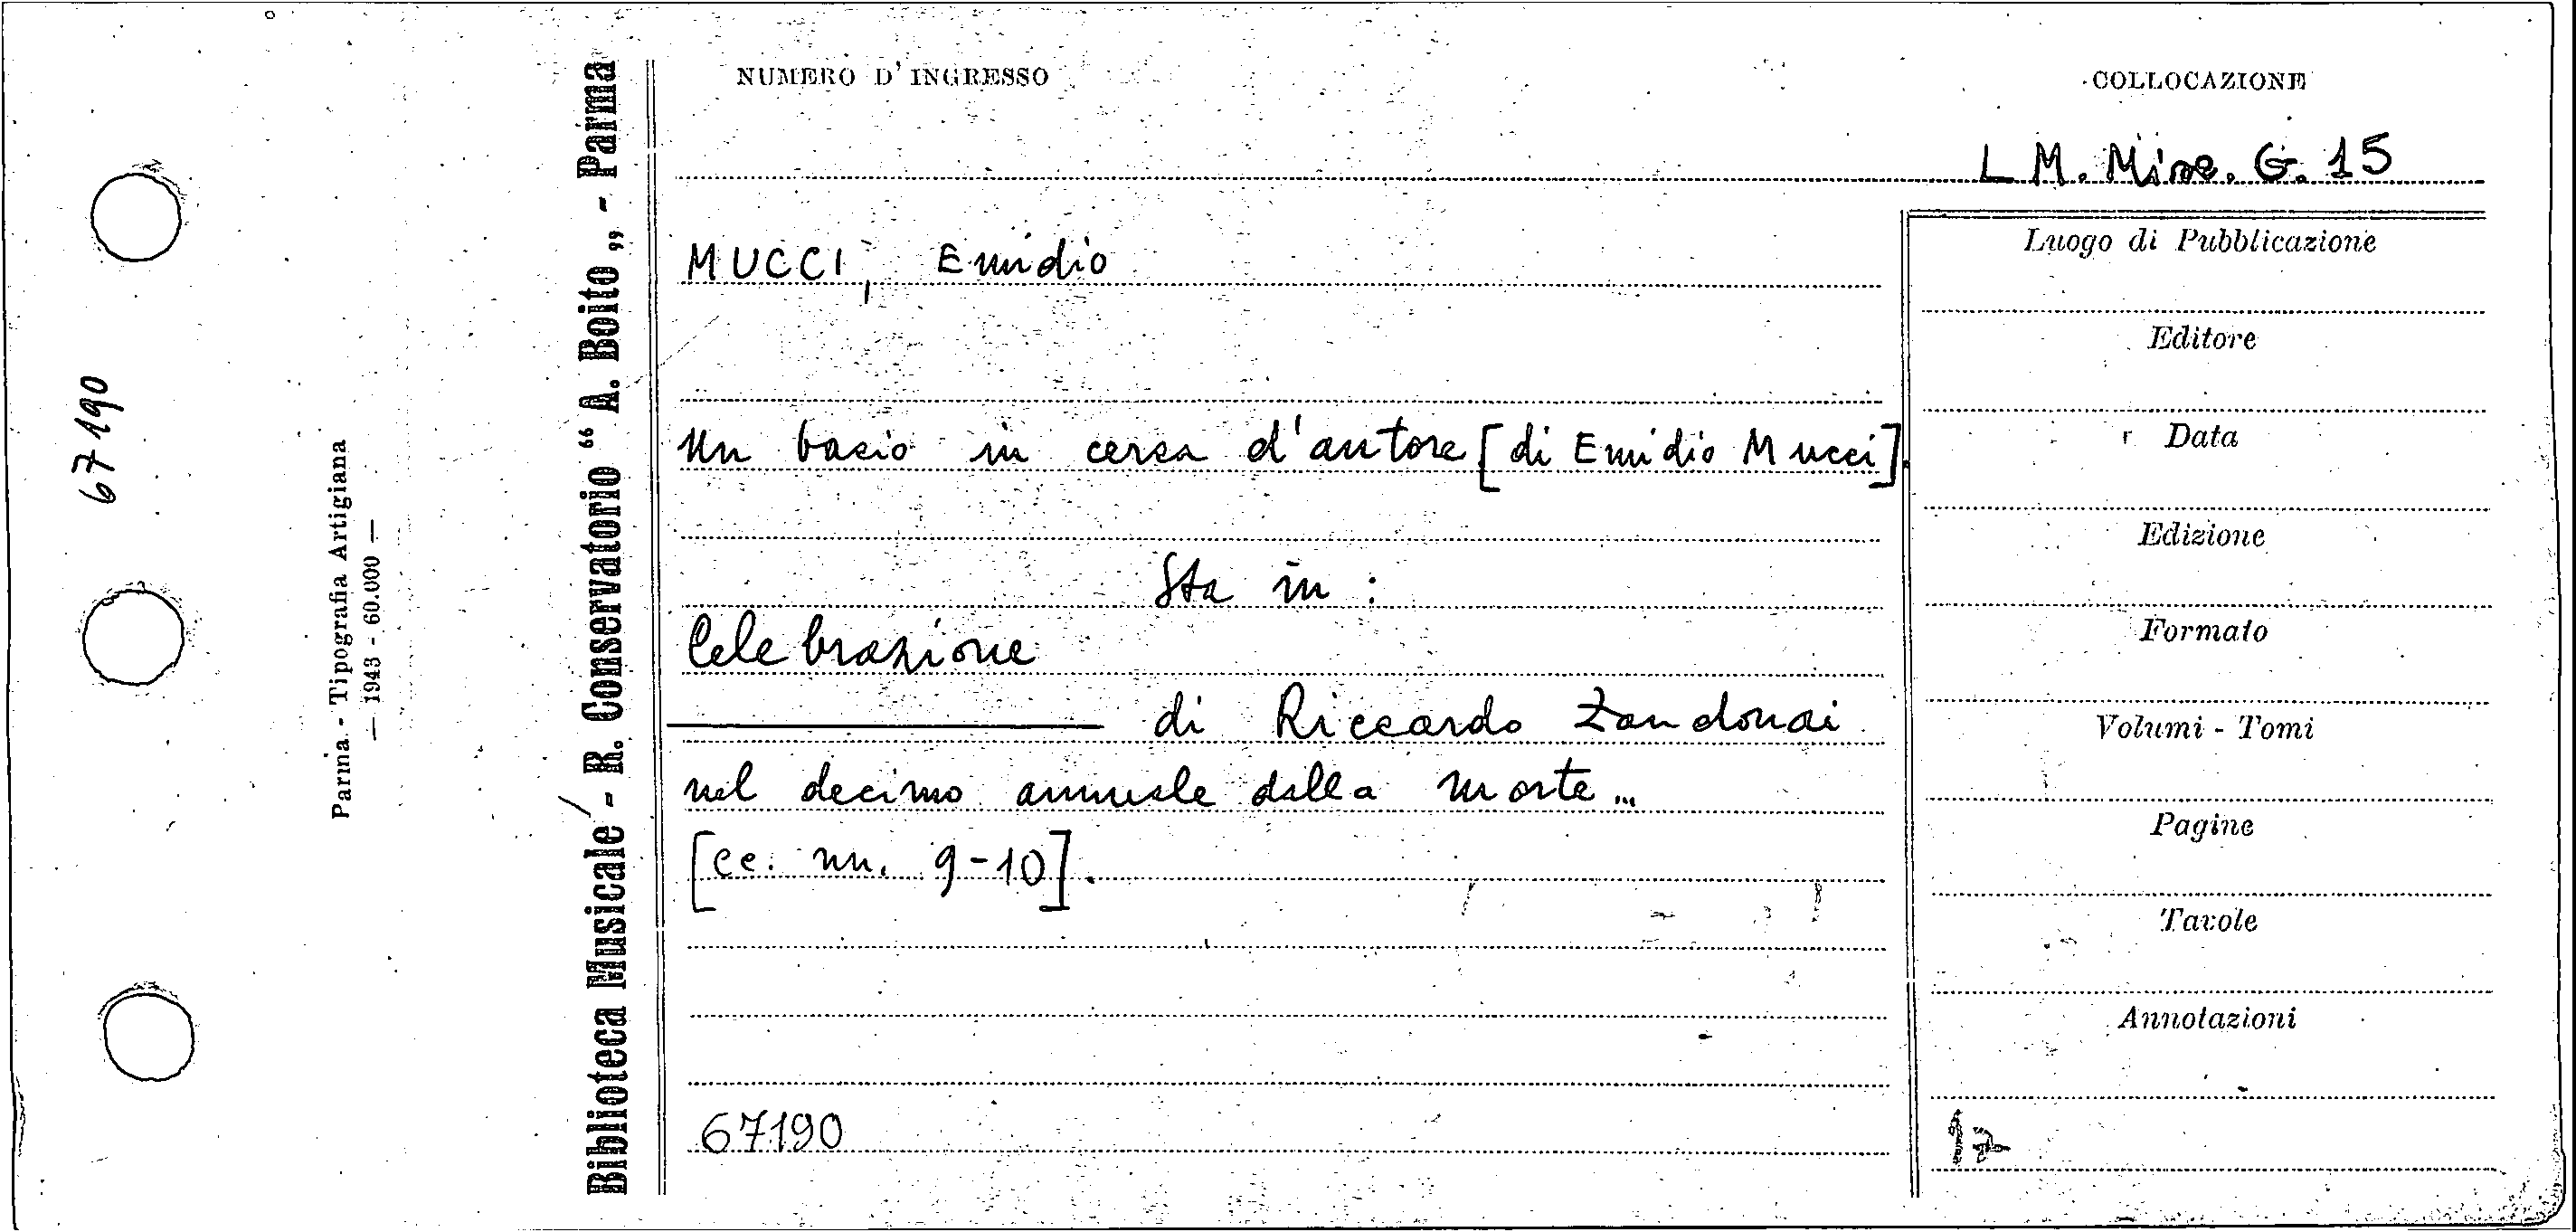 NUMERO D'INGRESSO
COLLOCAZIONE
L M. Misc. G. 15
MUCCI, Emidio
Un bacio in cerca d'autore [di Emidio Mucci].
Sta in :
Celebrazione
di Riccardo Zandonai
nel decimo annuale della morte...
[cc. nn. 9-10].
67190
Luogo di Pubblicazione
Editore
Data
Edizione
Formato
Volumi - Tomi
Pagine
Tavole
Annotazioni
Biblioteca Musicale - R. Conservatorio “ A. Boito „ - Parma
Parma - Tipografia Artigiana
— 1943 - 60.000 —
67190